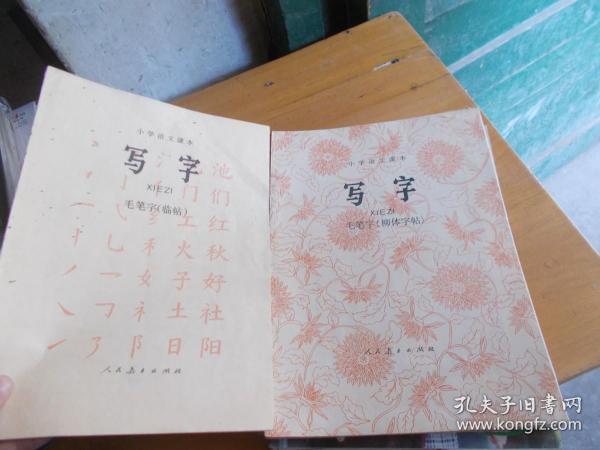 小学语文课本
写字
XIEZI
毛笔字(临帖)
池
们
门
红
工
秋
火
禾
好
子
女
社
土
礻
阳
日
阝
人民教育出版社
小学语文课本
写字
XIEZI
毛笔字(柳体字帖)
人民教育出版社
孔夫子旧书网
www.kongfz.com